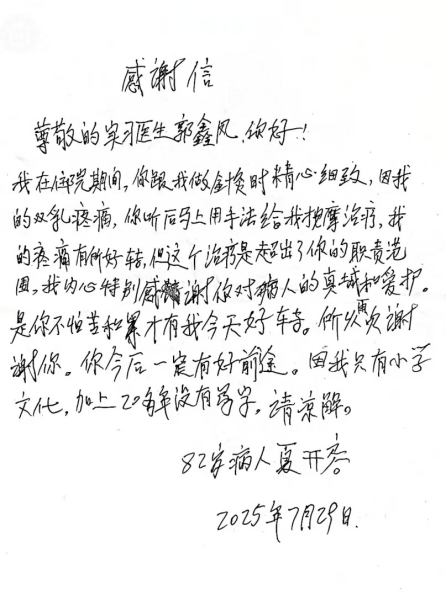 感谢信
尊敬的实习医生郭鑫凤,你好!
我在住院期间,你跟我做针换时精心细致,因我
的双乳疼痛,你听后马上用手法给我按摩治疗,我
的疼痛有所好转,但这个治疗是超出了你的职责范
围,我内心特别感谢你对病人的真诚和爱护。
是你不怕苦和累才有我今天好转。所以再次谢
谢你。你今后一定有好前途。因我只有小学
文化,加上20多年没有写字。请谅解。
82岁病人夏开
2025年7月29日.